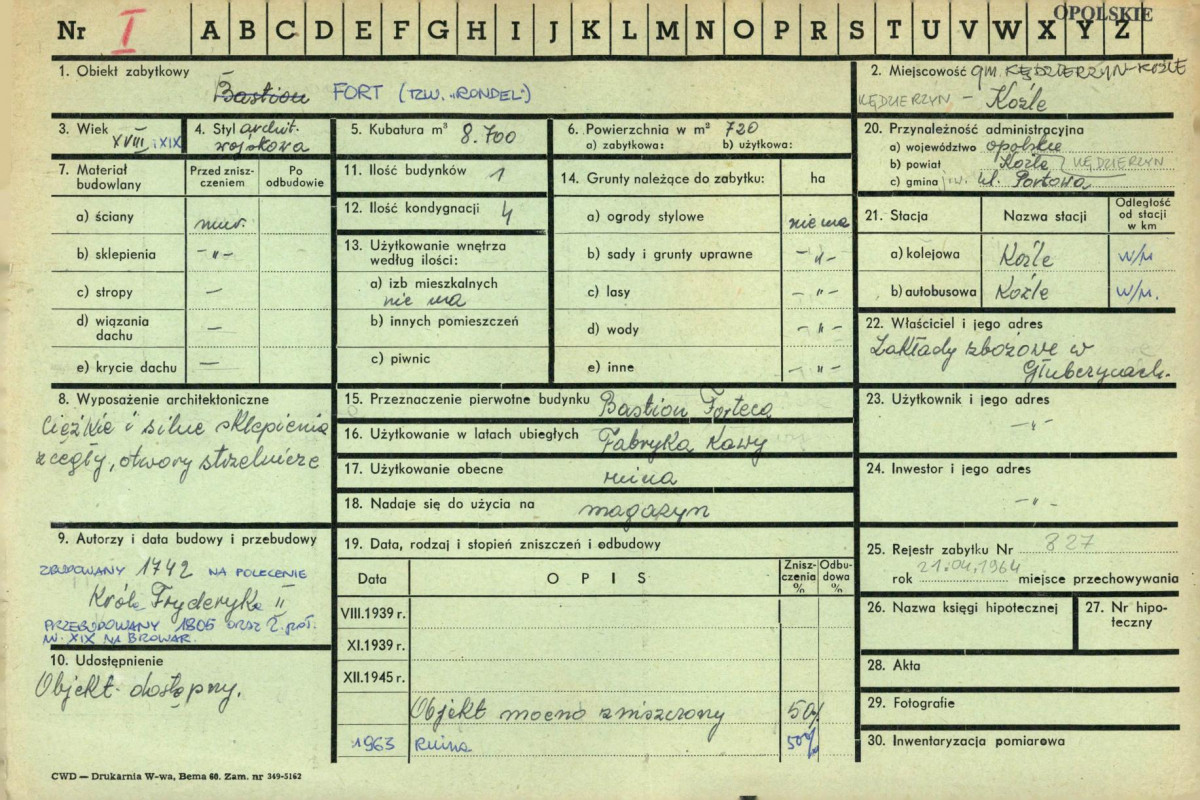 Nr I A B C D E F G H I J K L M N O P R S T U V W X Y Z OPOLSKIE
1. Obiekt zabytkowy
Bastion FORT (TZW. „RONDEL")
2. Miejscowość gm. KĘDZIERZYN-KOŹLE
KĘDZIERZYN – Koźle
3. Wiek
XVIII i XIX
4. Styl archit.
wojskowa
5. Kubatura m³ 8.700
6. Powierzchnia w m² 720
a) zabytkowa: b) użytkowa:
20. Przynależność administracyjna
a) województwo opolskie
b) powiat Koźle KĘDZIERZYN
c) gmina ul. Portowa
7. Materiał
budowlany
Przed znisz-
czeniem
Po
odbudowie
a) ściany mur.
b) sklepienia –"–
c) stropy —
d) wiązania
dachu —
e) krycie dachu —
11. Ilość budynków 1
12. Ilość kondygnacji 4
13. Użytkowanie wnętrza
według ilości:
a) izb mieszkalnych
nie ma
b) innych pomieszczeń
c) piwnic
14. Grunty należące do zabytku: ha
a) ogrody stylowe nie ma
b) sady i grunty uprawne –"–
c) lasy –"–
d) wody –"–
e) inne –"–
21. Stacja Nazwa stacji
Odległość
od stacji
w km
a) kolejowa Koźle W/M
b) autobusowa Koźle W/M.
22. Właściciel i jego adres
Zakłady zbożowe w
Głubczycach.
8. Wyposażenie architektoniczne
Ciężkie i silne sklepienia
z cegły, otwory strzelnicze
15. Przeznaczenie pierwotne budynku Bastion Forteca
16. Użytkowanie w latach ubiegłych Fabryka Kawy
17. Użytkowanie obecne ruina
18. Nadaje się do użycia na magazyn
23. Użytkownik i jego adres
–"–
24. Inwestor i jego adres
–"–
9. Autorzy i data budowy i przebudowy
ZBUDOWANY 1742 NA POLECENIE
Króla Fryderyka II
PRZEBUDOWANY 1806 ORAZ 2. POŁ.
W. XIX NA BROWAR.
10. Udostępnienie
Objekt dostępny.
19. Data, rodzaj i stopień zniszczeń i odbudowy
Data OPIS
Znisz-
czenia
%
Odbu-
dowa
%
VIII.1939 r.
XI.1939 r.
XII.1945 r.
Objekt mocno zniszczony 50%
1963 Ruina 50%
25. Rejestr zabytku Nr 827
rok 21.04.1964 miejsce przechowywania
26. Nazwa księgi hipotecznej
27. Nr hipo-
teczny
28. Akta
29. Fotografie
30. Inwentaryzacja pomiarowa
CWD — Drukarnia W-wa, Bema 60. Zam. nr 349-5162